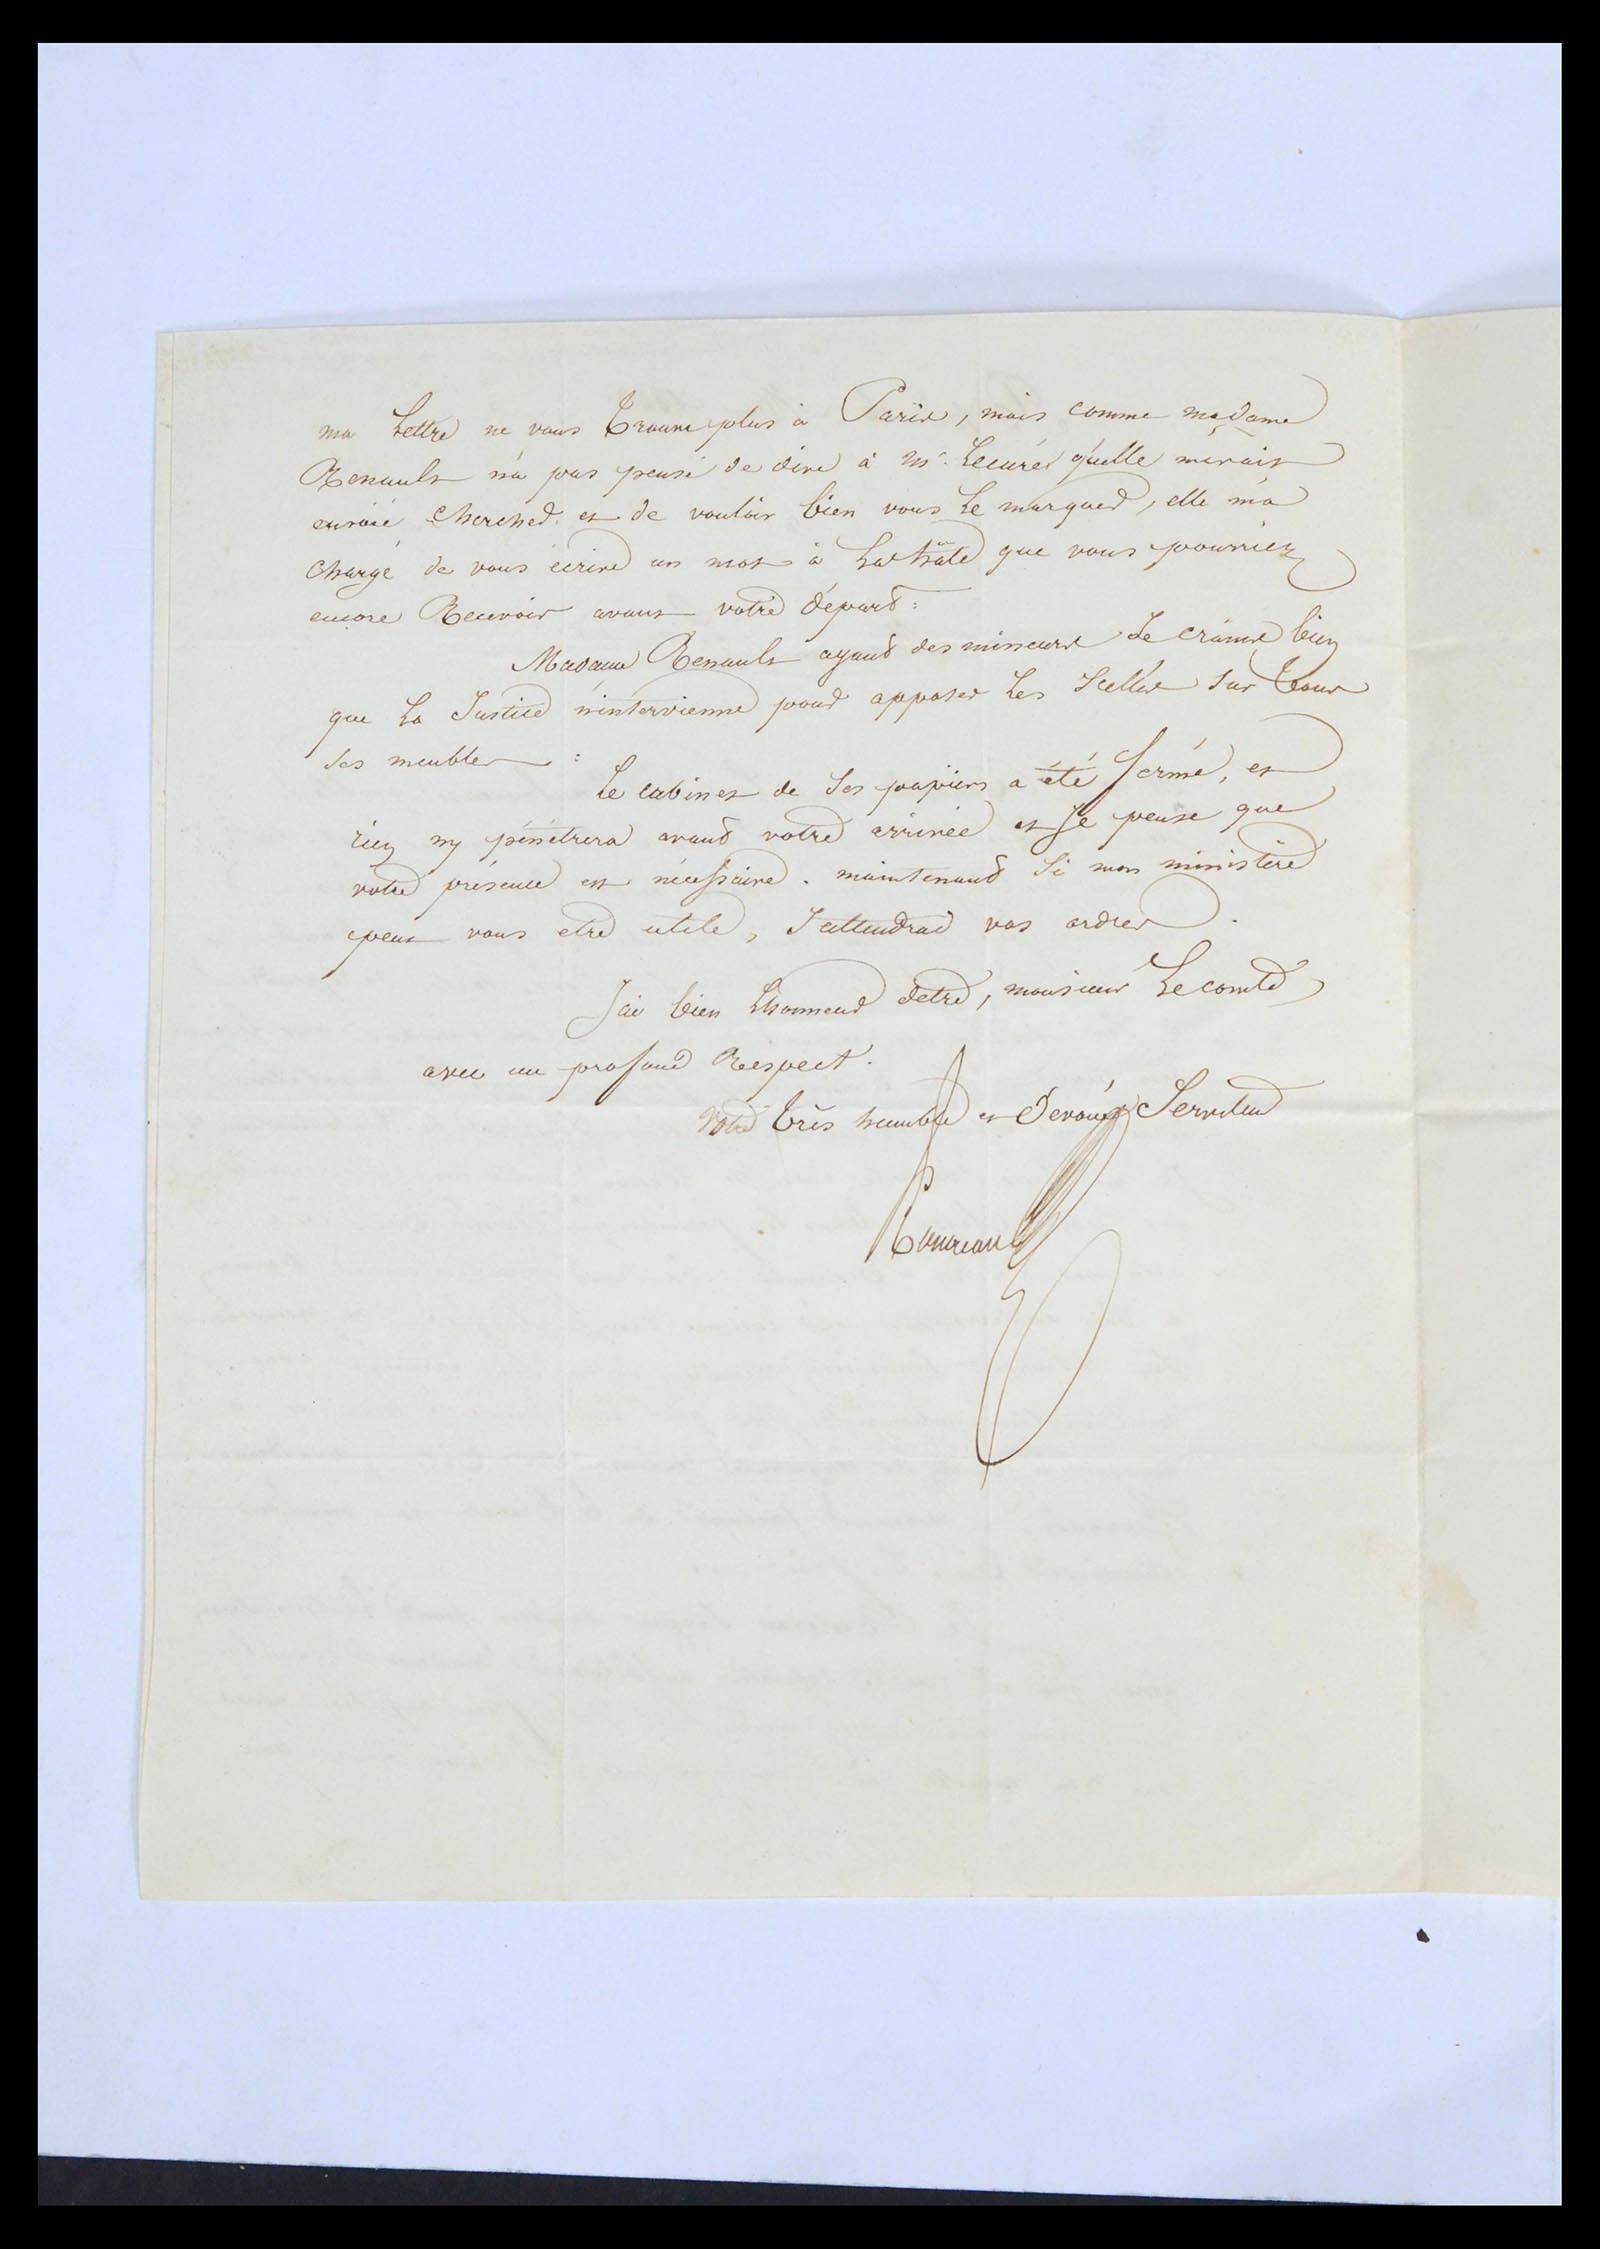 ma Lettre ne vous Trouve plus à Paris, mais comme madame
Renault n'a pas pensé de dire à Mr. Lecuré qu'elle m'avait
envoié chercher et de vouloir bien vous Le marquer, elle m'a
chargé de vous écrire un mot à La hâte que vous pourriez
encore Recevoir avant votre départ :
Madame Renault ayant des mineurs Je crains bien
que La Justice n'intervienne pour apposer Les Scellés Sur Tous
Ses meubles :
Le cabinet de Ses papiers a été fermé, et
rien ny pénétrera avant votre arrivée et Je pense que
votre présence est nécessaire. maintenant Si mon ministère
peut vous etre utile, J'attendrai vos ordres.
J'ai bien L'honneur d'etre, monsieur Le comte
avec un profond Respect.
Votre Très humble et Devoué Serviteur